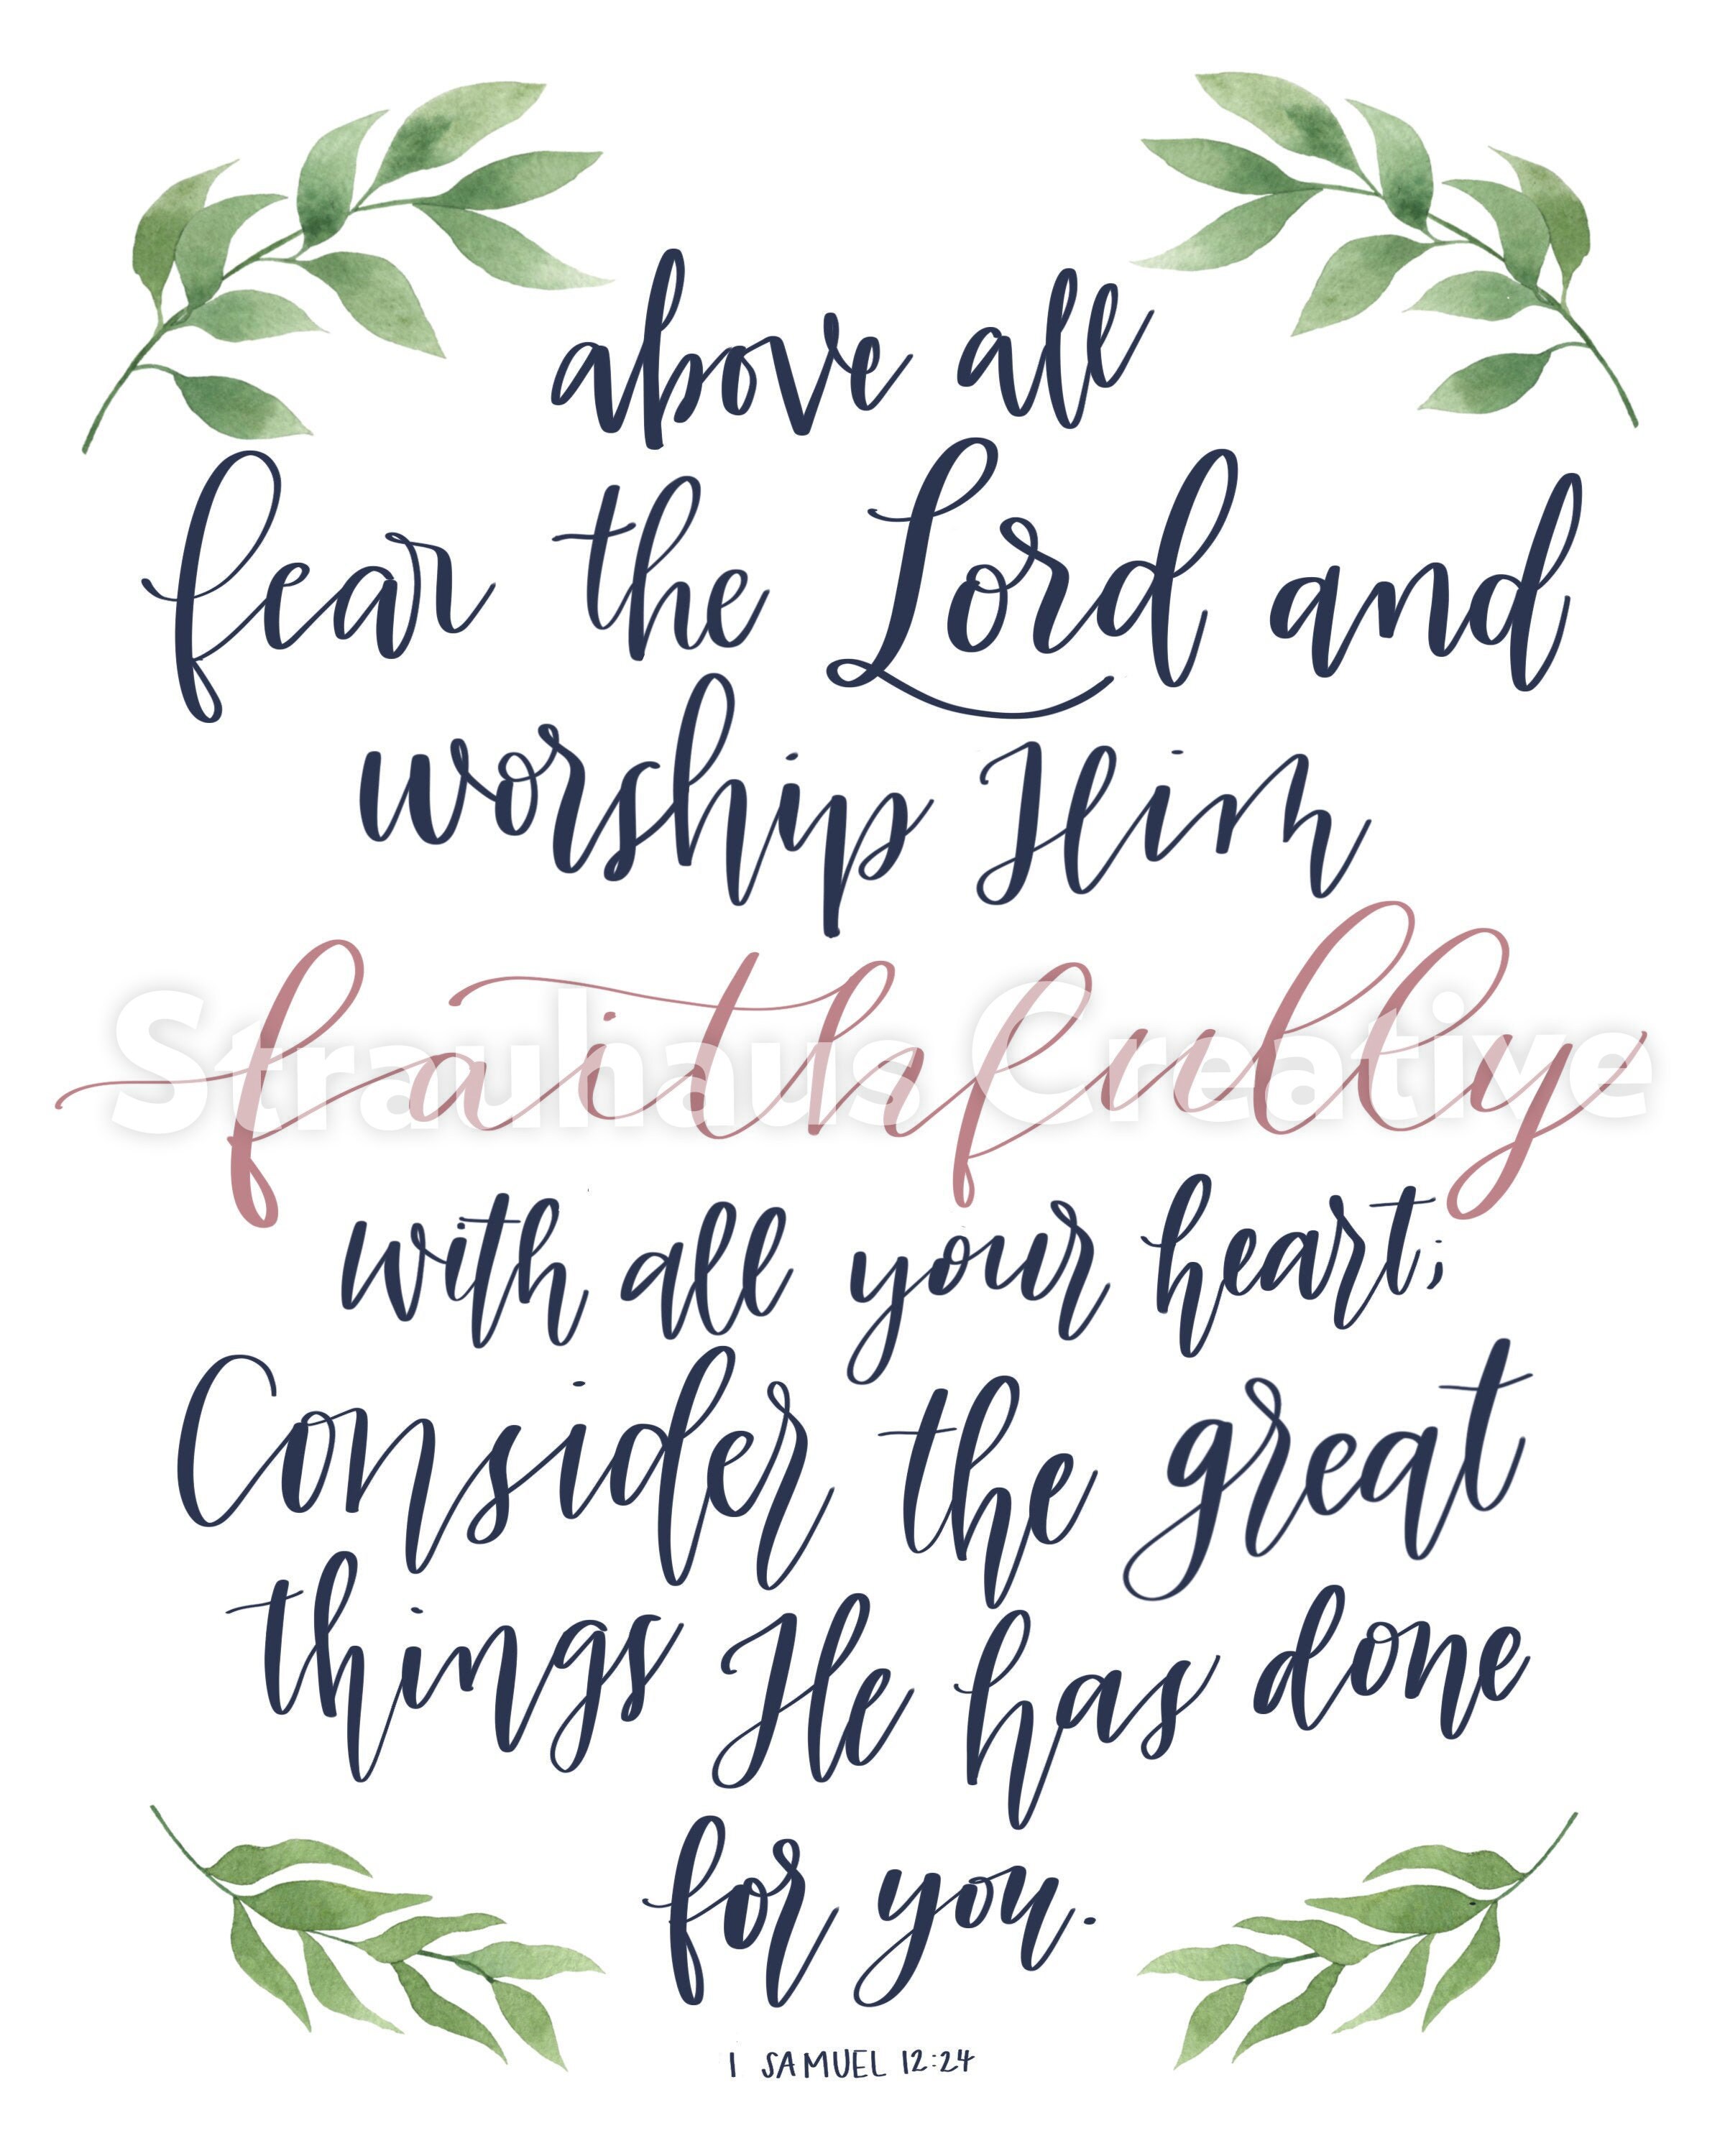 above all
fear the Lord and
worship Him
faithfully
Strauhaus Creative
with all your heart;
Consider the great
things He has done
for you.
1 SAMUEL 12:24